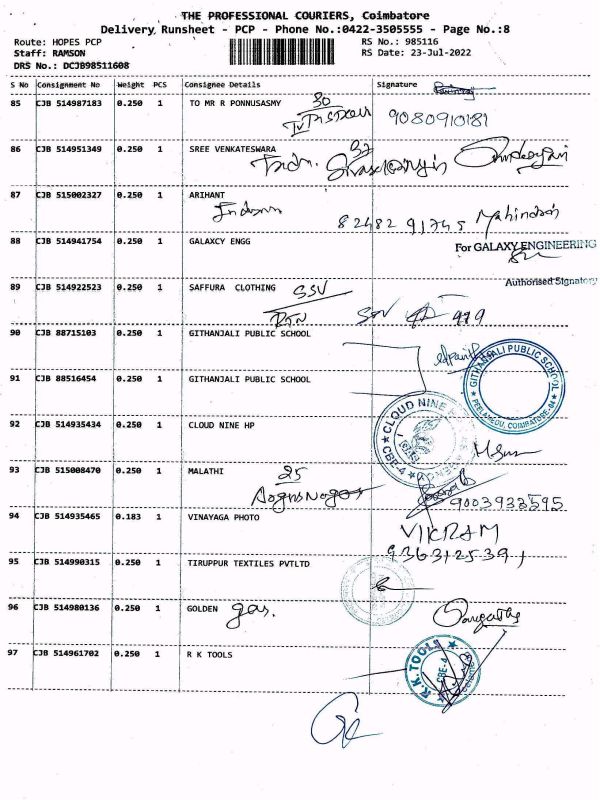 THE PROFESSIONAL COURIERS, Coimbatore
Delivery Runsheet - PCP - Phone No.:0422-3505555 - Page No.:8
Route: HOPES PCP RS No.: 985116
Staff: RAMSON RS Date: 23-Jul-2022
DRS No.: DCJB98511608
S No Consignment No Weight PCS Consignee Details Signature
85 CJB 514987183 0.250 1 TO MR R PONNUSASMY 30
9080910181
86 CJB 514951349 0.250 1 SREE VENKATESWARA 32
87 CJB 515002327 0.250 1 ARIHANT
82482 91745 Mahindran
88 CJB 514941754 0.250 1 GALAXCY ENGG For GALAXY ENGINEERING
Authorised Signatory
89 CJB 514922523 0.250 1 SAFFURA CLOTHING SSV
RTN
90 CJB 88715103 0.250 1 GITHANJALI PUBLIC SCHOOL
GITHANJALI PUBLIC SCHOOL
PEELAMEDU, COIMBATORE-04
91 CJB 88516454 0.250 1 GITHANJALI PUBLIC SCHOOL
92 CJB 514935434 0.250 1 CLOUD NINE HP
CLOUD NINE
CBE-4
93 CJB 515008470 0.250 1 MALATHI 25
9003933595
94 CJB 514935465 0.183 1 VINAYAGA PHOTO VIKRAM
9363125391
95 CJB 514990315 0.250 1 TIRUPPUR TEXTILES PVTLTD
96 CJB 514980136 0.250 1 GOLDEN gas.
97 CJB 514961702 0.250 1 R K TOOLS
R.K.TOOLS
CBE-4